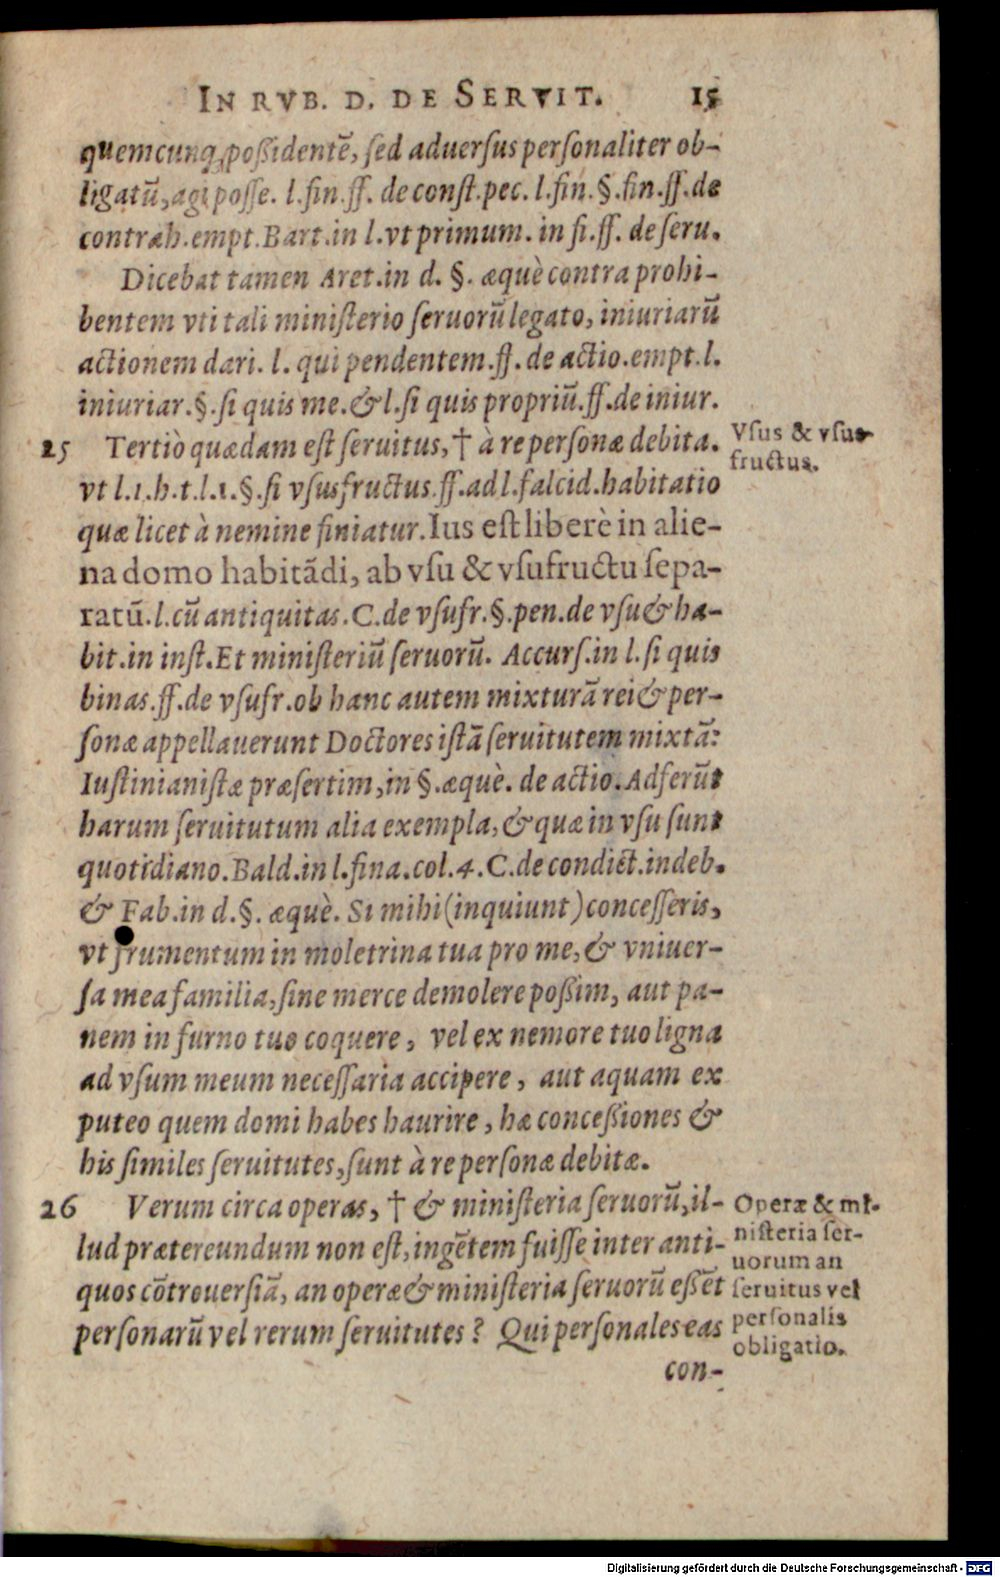 IN RVB. D. DE SERVIT. 15
quemcunq; poßidentē, ſed aduerſus perſonaliter ob-
ligatū, agi poſſe. l. fin. ff. de conſt. pec. l. fin. §. fin. ff. de
contrah. empt. Bart. in l. vt primum. in fi. ff. de ſeru.
Dicebat tamen Aret. in d. §. æquè contra prohi-
bentem vti tali miniſterio ſeruorū legato, iniuriarū
actionem dari. l. qui pendentem. ff. de actio. empt. l.
iniuriar. §. ſi quis me. & l. ſi quis propriū. ff. de iniur.
25 Tertiò quædam eſt ſeruitus, † à re perſonæ debita.
Vſus & vſus
fructus.
vt l. 1. h. t. l. 1. §. ſi vſusfructus. ff. ad l. falcid. habitatio
quæ licet à nemine finiatur. Ius eſt liberè in alie-
na domo habitādi, ab vſu & vſufructu ſepa-
ratū. l. cū antiquitas. C. de vſufr. §. pen. de vſu & ha-
bit. in inſt. Et miniſteriū ſeruorū. Accurſ. in l. ſi quis
binas. ff. de vſufr. ob hanc autem mixturā rei & per-
ſonæ appellauerunt Doctores iſtā ſeruitutem mixtā:
Iuſtinianiſtæ præſertim, in §. æquè. de actio. Adferūt
harum ſeruitutum alia exempla, & quæ in vſu ſunt
quotidiano. Bald. in l. fina. col. 4. C. de condict. indeb.
& Fab. in d. §. æquè. Si mihi (inquiunt) conceſſeris,
vt frumentum in moletrina tua pro me, & vniuer-
ſa mea familia, ſine merce demolere poßim, aut pa-
nem in furno tuo coquere, vel ex nemore tuo ligna
ad vſum meum neceſſaria accipere, aut aquam ex
puteo quem domi habes haurire, hæ conceßiones &
his ſimiles ſeruitutes, ſunt à re perſonæ debitæ.
26 Verum circa operas, † & miniſteria ſeruorū, il-
lud prætereundum non eſt, ingētem fuiſſe inter anti-
quos cōtrouerſiā, an operæ & miniſteria ſeruorū eßēt
perſonarū vel rerum ſeruitutes? Qui perſonales eas
Operæ & mi-
niſteria ſer-
uorum an
ſeruitus vel
perſonalis
obligatio.
con-
Digitalisierung gefördert durch die Deutsche Forschungsgemeinschaft - DFG